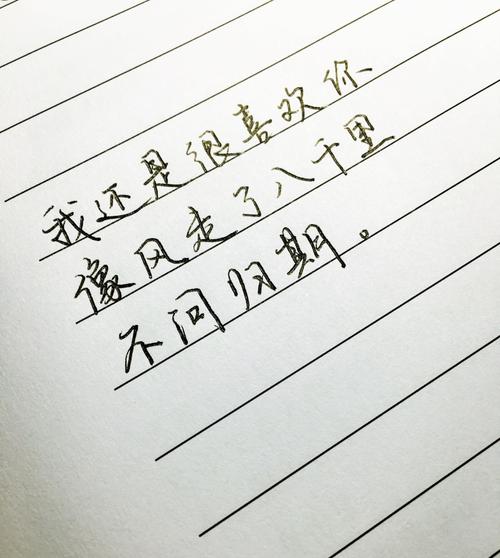 我还是很喜欢你
像风走了八千里
不问归期。